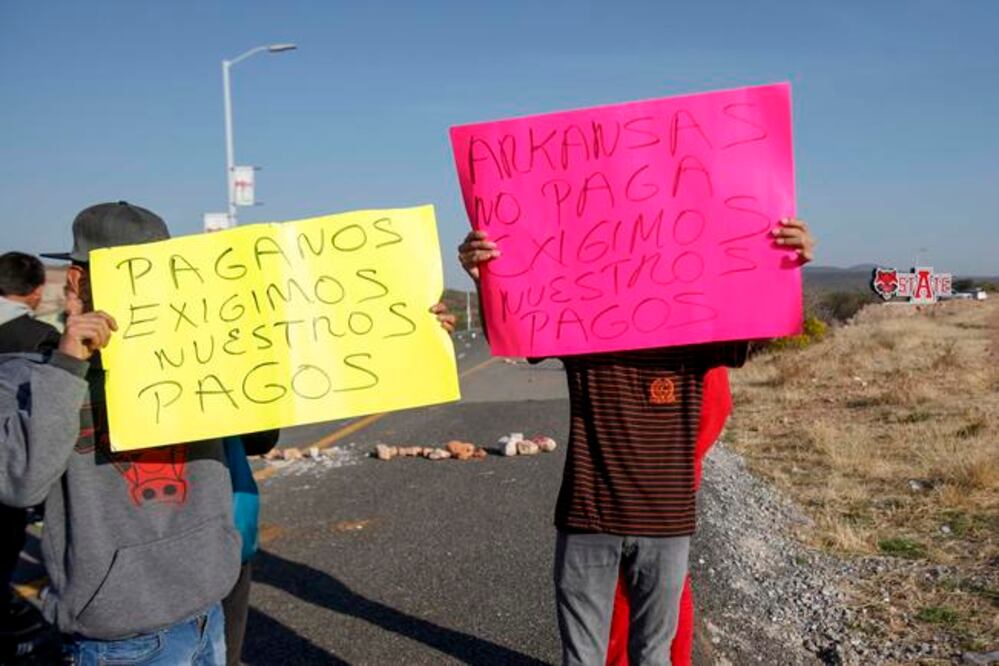 PAGANOS
EXIGIMOS
NUESTROS
PAGOS
ARKANSAS
NO PAGA
EXIGIMOS
NUESTROS
PAGOS
STATE